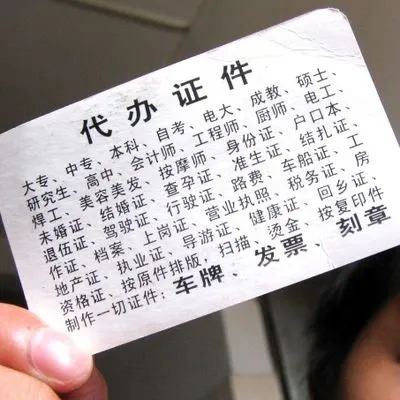 代办证件
大专、中专、本科、自考、电大、成教、硕士、
研究生、高中、会计师、工程师、厨师、电工、
焊工、美容美发、按摩师、身份证、户口本、
未婚证、结婚证、查孕证、准生证、结扎证、
退伍证、驾驶证、行驶证、路费、车船证、工
作证、档案、上岗证、营业执照、税务证、房
地产证、执业证、导游证、健康证、回乡证、
资格证、按原件排版,扫描、烫金、按复印件
制作一切证件:车牌、发票、刻章